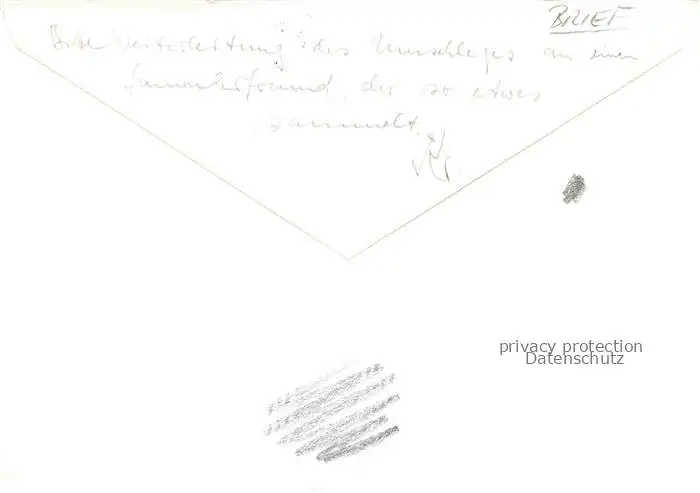 BRIEF
Bitte Weiterleitung des Umschlages an einen
Sammlerfreund, der so etwas
sammelt.
privacy protection
Datenschutz